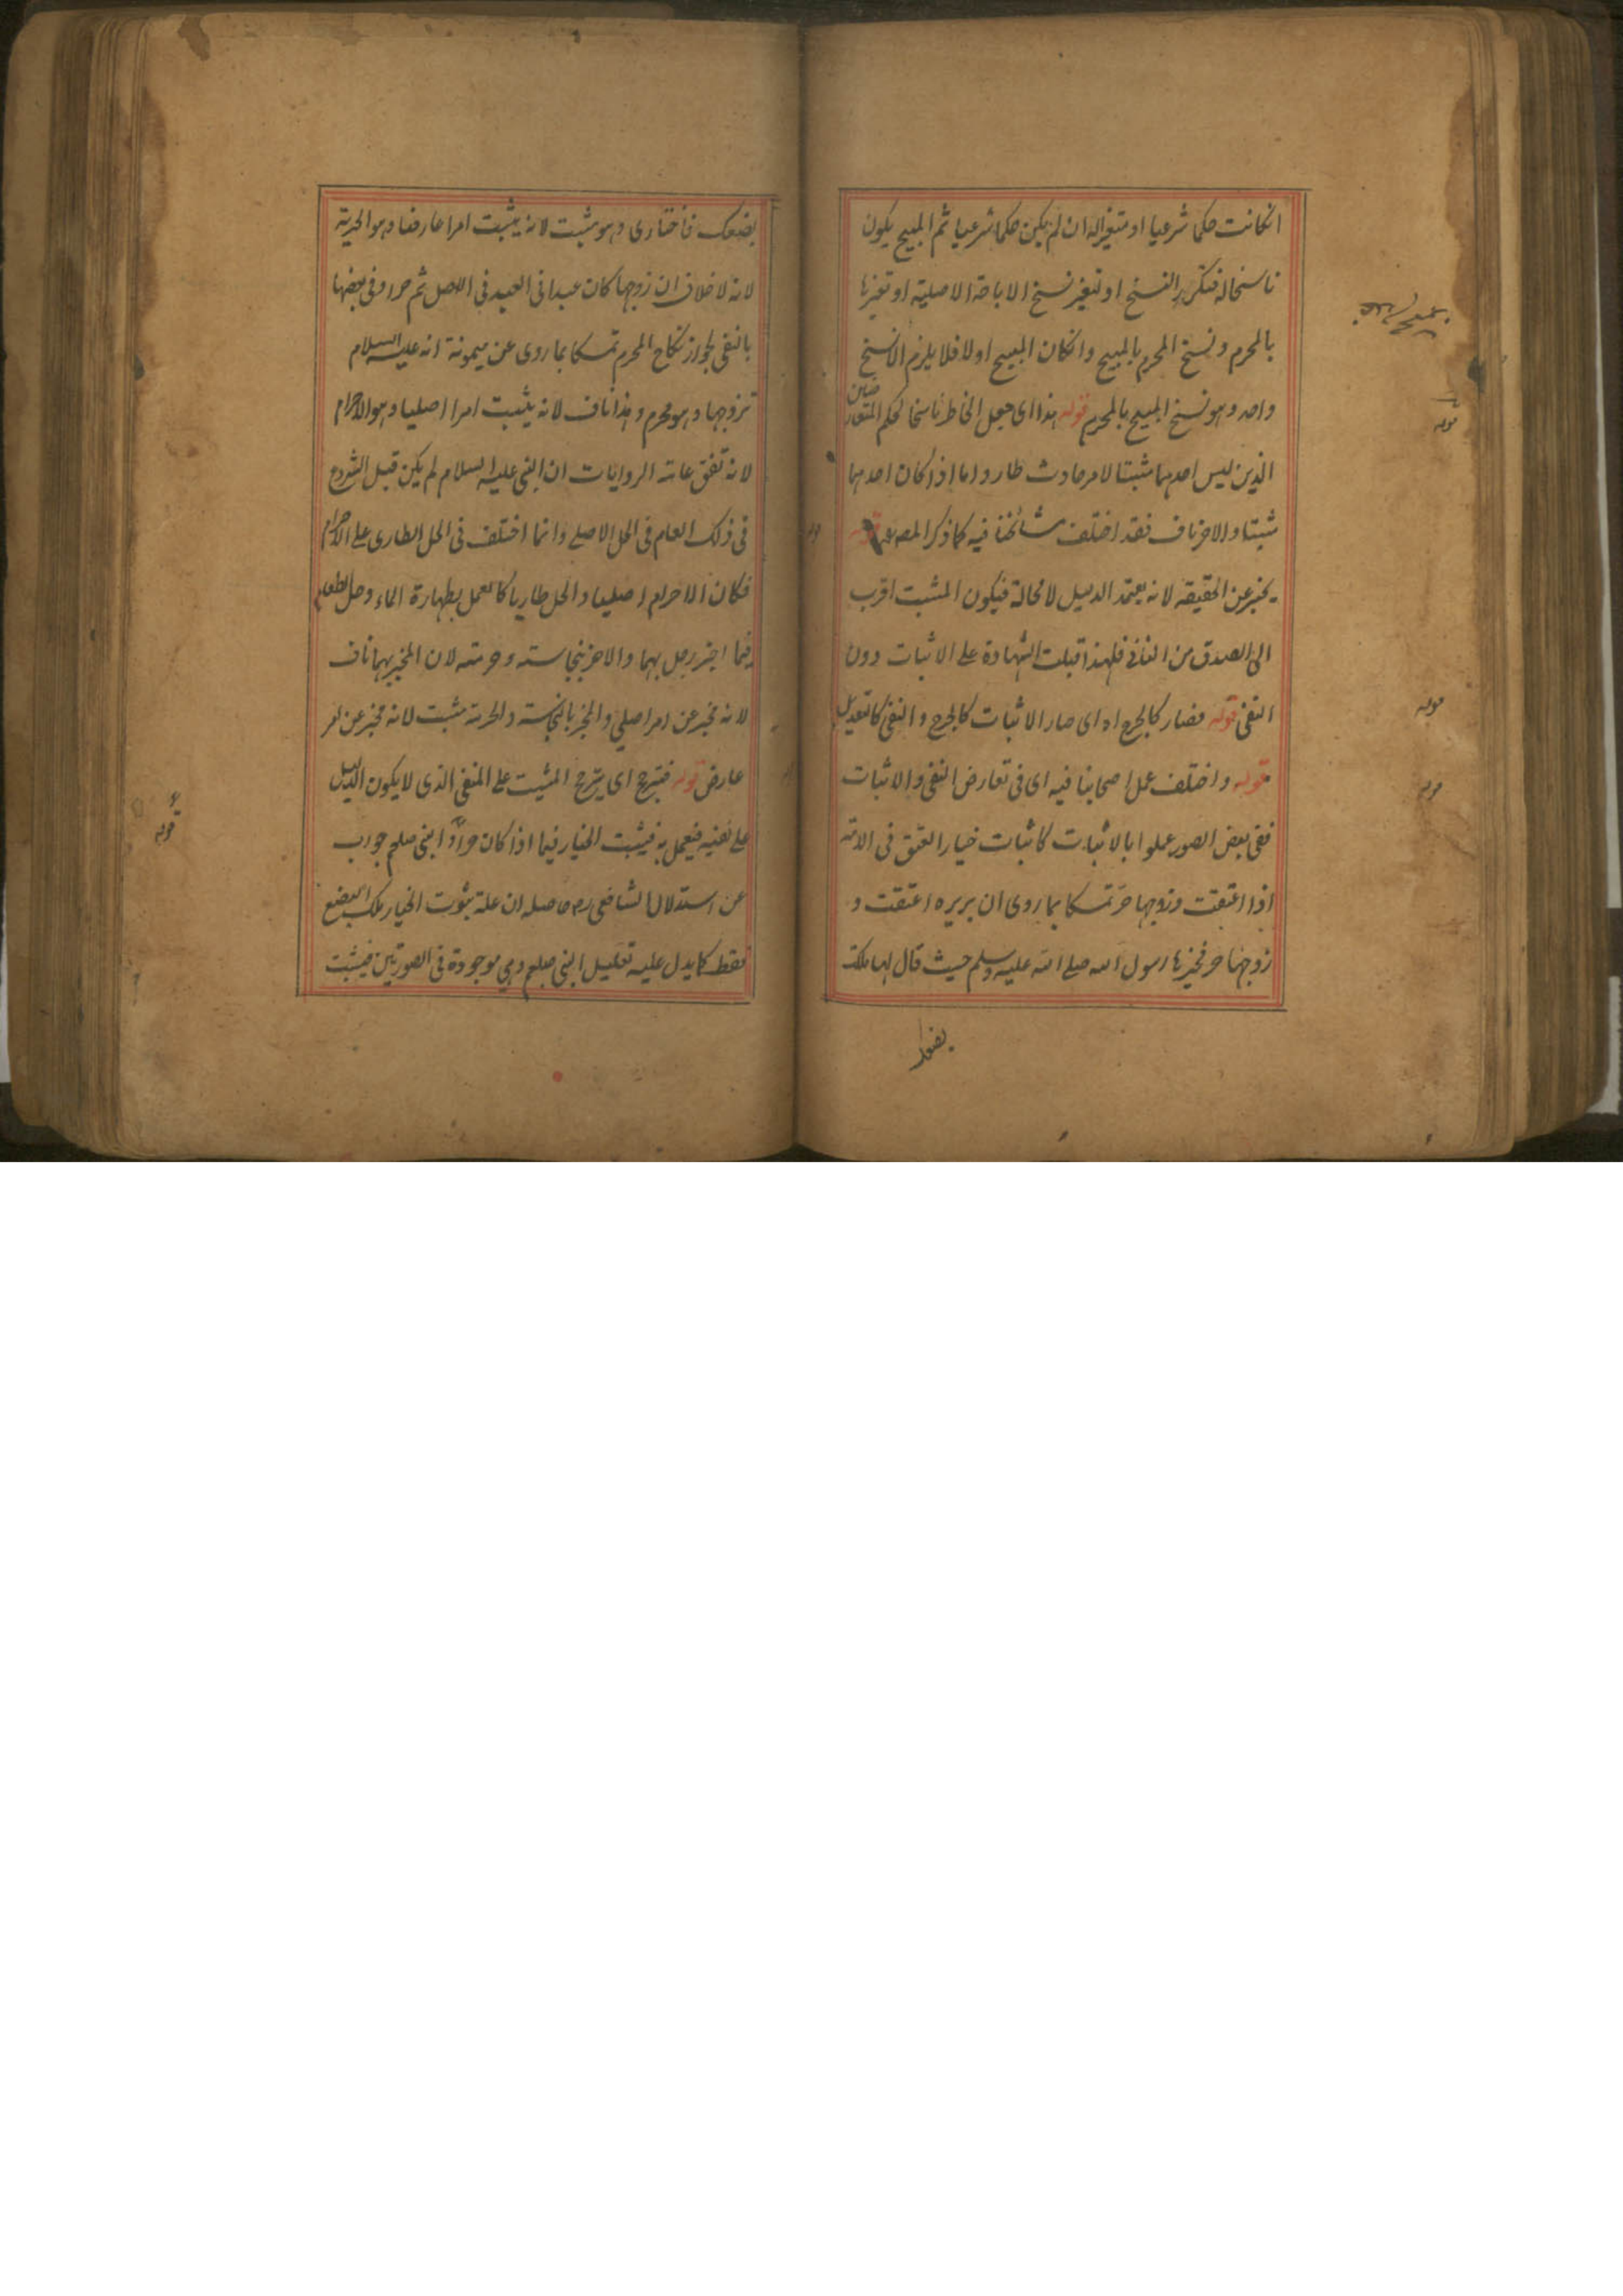 انكانت حكما شرعيا او متغيرا له ان لم يكن حكما شرعيا ثم المبيح يكون
ناسخا له فتكرر النسخ او لتغير نسخ الاباحة الاصلية او تغيرها
بالمحرم و نسخ المحرم بالمبيح وانكان المبيح اولا فلا يلزم الا نسخ
واحد وهو نسخ المبيح بالمحرم قوله هذا اى جعل الحاظر ناسخا لحكم المتعارضين
الذين ليس احدهما مثبتا لامر حادث طار واما اذا كان احدهما
مثبتا والاخر ناف فقد اختلف مشائخنا فيه كما ذكر المصـ قوله
يخبر عن الحقيقة لانه يعتمد الدليل لا محالة فيكون المثبت اقرب
الى الصدق من النافى فلهذا قبلت الشهادة على الاثبات دون
النفى قوله فصار كالجرح اه اى صار الاثبات كالجرح والنفى كالتعديل
قوله واختلف عمل اصحابنا فيه اى فى تعارض النفى والاثبات
ففى بعض الصور عملوا بالاثبات كاثبات خيار العتق فى الامة
اذا اعتقت وزوجها حر تمسكا بما روى ان بريره اعتقت و
زوجها حر فخيرها رسول الله صلى الله عليه وسلم حيث قال لها ملكت
بضعك
بضعك فاختارى وهو مثبت لانه يثبت امرا عارضا وهو الحرية
لانه لا خلاف ان زوجها كان عبدا فى العبد فى الاصل ثم حر او فى بعضها
بالنفى لجواز نكاح المحرم تمسكا بما روى عن ميمونة انه عليه السلام
تزوجها وهو محرم وهذا ناف لانه يثبت امرا اصليا وهو الاحرام
لانه تتفق عامة الروايات ان النبى عليه السلام لم يكن قبل التزوج
فى ذلك العام فى الحل الاصلى وانما اختلف فى الحل الطارى على الاحرام
فكان الاحرام اصليا والحل طاريا كالعمل بطهارة الماء وحل الطعام
فيما اخبر رجل بهما والاخر بنجاسته وحرمته لان المخبر بهما ناف
لانه مخبر عن امر اصلى والمخبر بالنجاسة والحرمة مثبت لانه مخبر عن امر
عارض قوله فيترجح اى يترجح المثبت على المنفى الذى لا يكون الدليل
على نفيه فيعمل به فيثبت الخيار فيما اذا كان حرا النبى صلعم جواب
عن استدلال الشافعى رح حاصله ان علة ثبوت الخيار ملك البضع
فقط كما يدل عليه تعليل النبى صلعم وهى موجودة فى الصورتين فيثبت
قوله
قوله
قوله
قوله